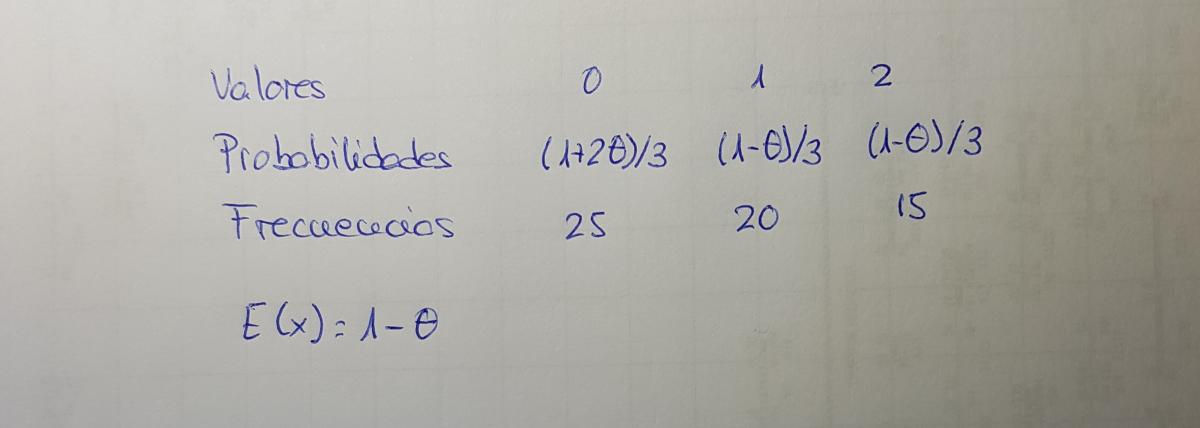 Valores 0 1 2
Probabilidades (1+2θ)/3 (1-θ)/3 (1-θ)/3
Frecuencias 25 20 15
E(x)=1-θ